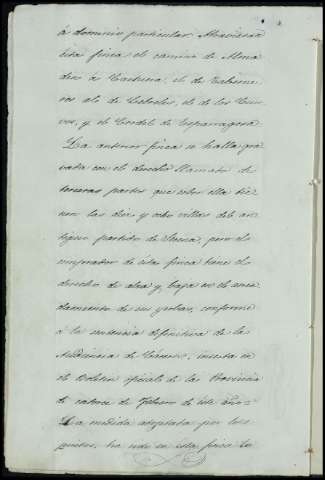 á dominio particular. Atraviesa
esta finca el camino de Alma
den á Castuera, el de Cabezue
ros al de Ceboles, el de los Cuer
vos, y el Cordel de Esparragosa.
La anterior finca se halla gra
vada con el derecho llamado de
terceras partes que sobre ella tie
nen las diez y ocho villas del an
tiguo partido de Serena, pero el
comprador de esta finca tiene el
derecho de alza y baja en el arren
damiento de sus yerbas, conforme
á la sentencia definitiva de la
Audiencia de Cáceres, inserta en
el Boletin oficial de la Provincia
de catorce de Febrero de este año.
La medida adoptada por los
peritos, ha sido en esta finca la